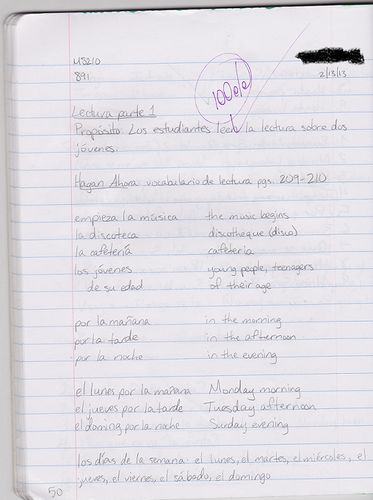 MS210
891
100%
2/13/13
Lectura parte 1
Propósito: Los estudiantes leen la lectura sobre dos
jóvenes.
Hagan Ahora: vocabulario de lectura pgs. 209-210
empieza la música the music begins
la discoteca discotheque (disco)
la cafetería cafeteria
los jóvenes young people, teenagers
de su edad of their age
por la mañana in the morning
por la tarde in the afternoon
por la noche in the evening
el lunes por la mañana Monday morning
el jueves por la tarde Tuesday afternoon
el doming por la noche Sunday evening
los días de la semana: el lunes, el martes, el miércoles, el
jueves, el viernes, el sábado, el domingo
50